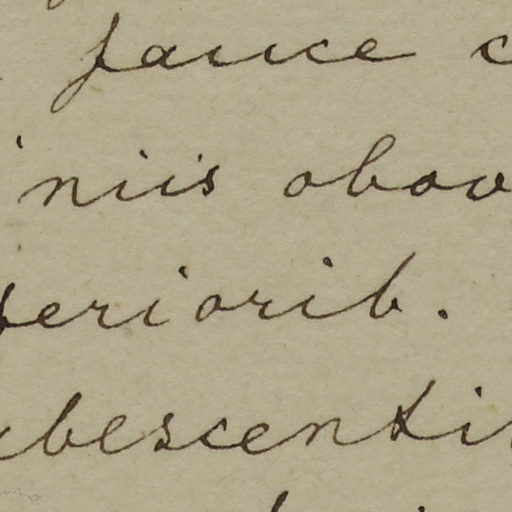 fauce c
iniis obov
periorib.
ubescenti